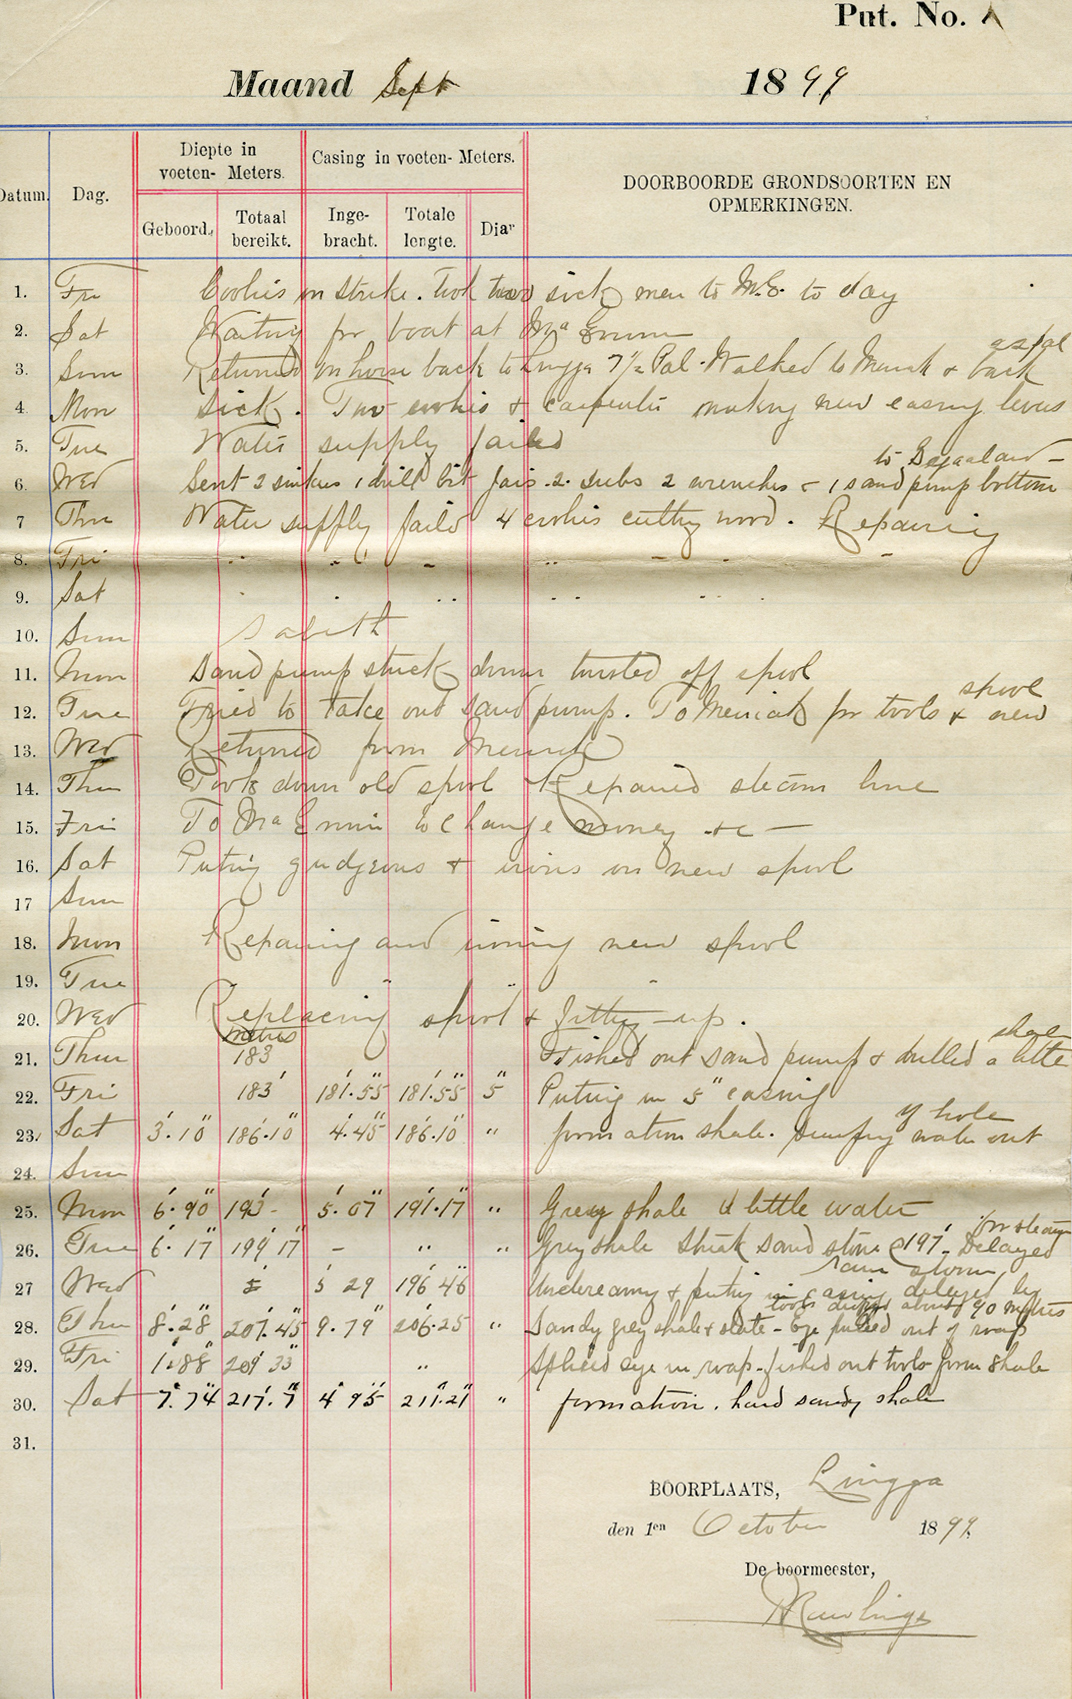 Put. No. A
Maand Sept 1899
Datum. Dag. Diepte in voeten- Meters. Casing in voeten- Meters. DOORBOORDE GRONDSOORTEN EN OPMERKINGEN.
Geboord. Totaal bereikt. Inge-bracht. Totale lengte. Diar
1. Fri Coolies on strike. Took two sick men to M.E. to day
2. Sat Waiting for boat at Ma Enim
3. Sun Returned on horse back to Lingga 7½ Pal. Walked to & back
4. Mon Sick. Two coolies & carpenter making new casing
5. Tue Water supply failed
to
6. Wed Sent 2 sinkers 1 drill bit jars. 2. subs 2 wrenches & 1 sand pump bottom
7 Thu Water supply failed 4 coolies cutting wood. Repairing
8. Fri " " " " " "
9. Sat " " " " "
10. Sun Sabath
11. Mon Sand pump stuck down twisted off spool
spool
12. Tue Tried to take out sand pump. To for tools & new
13. Wed Returned from
14. Thu Took down old spool Repaired steam line
15. Fri To Ma Enim to change money &c —
16. Sat Puting gudgeons & irons on new spool
17 Sun
18. Mon Repairing and ironing new spool
19. Tue " " "
20. Wed Replacing spool & fitting up.
metres shale
21. Thur 183 Fished out sand pump & drilled a little
22. Fri 183' 181'.55" 181'.55" 5" Puting in 5" casing
of hole
23. Sat 3'.10" 186'.10" 4'.45" 186'.10" " formation shale. Pumping water out
24. Sun
25. Mon 6'.90" 193'- 5'.07" 191'.17" " Grey shale & little water
for steam
26. Tue 6'.17" 199'17" - " " Grey shale streak sand stone @ 197'- Delayed
rain storm,
27 Wed " 5 29 196'46" Underreaming & puting in casing delayed by
tools dropped about 90 metres
28. Thu 8'.28" 207'.45" 9'.79" 206'.25" " Sandy grey shale & slate - Eye pulled out of rope
29. Fri 1'.88" 209'33" " Spliced eye in rope. fished out tools form shale
30. Sat 7'.74" 217'.7" 4'95" 211'.21" " formation. hard sandy shale
31.
BOORPLAATS, Lingga
den 1en October 1899.
De boormeester,
Rawlings